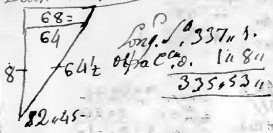 68=
64
8
64½
32„45
Long. 337„1.
1„8„
335„53„